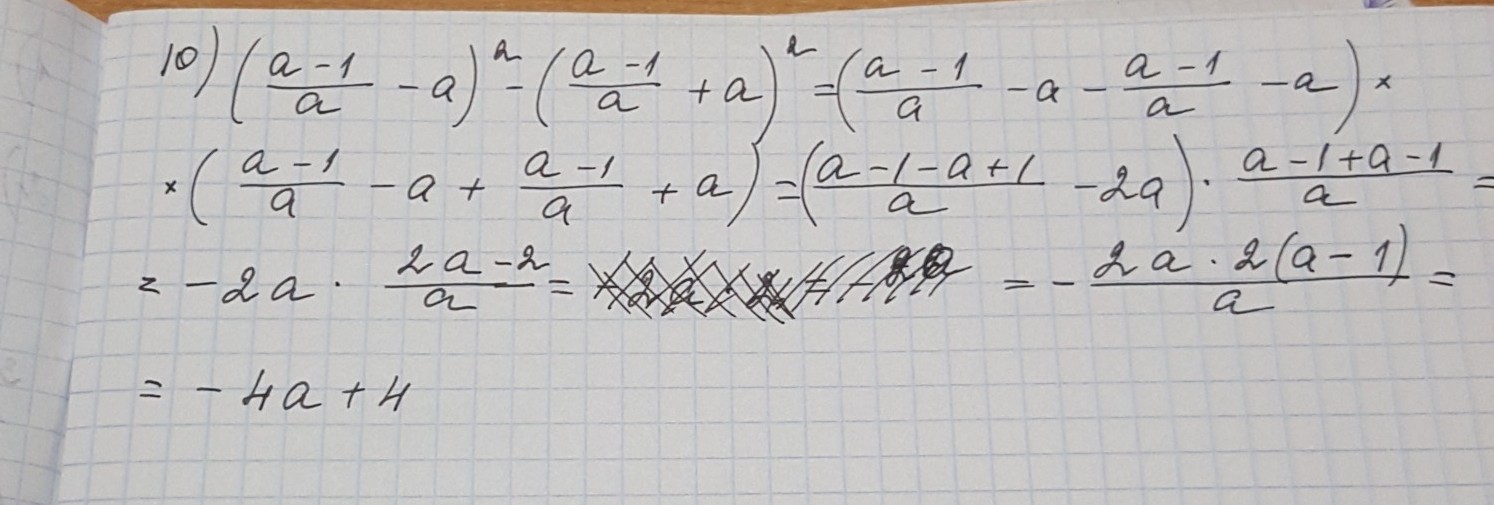 10) ((a-1)/a - a)² - ((a-1)/a + a)² = ((a-1)/a - a - (a-1)/a - a) ×
× ((a-1)/a - a + (a-1)/a + a) = ((a-1-a+1)/a - 2a) · (a-1+a-1)/a =
= -2a · (2a-2)/a = = - (2a · 2(a-1))/a =
= -4a + 4